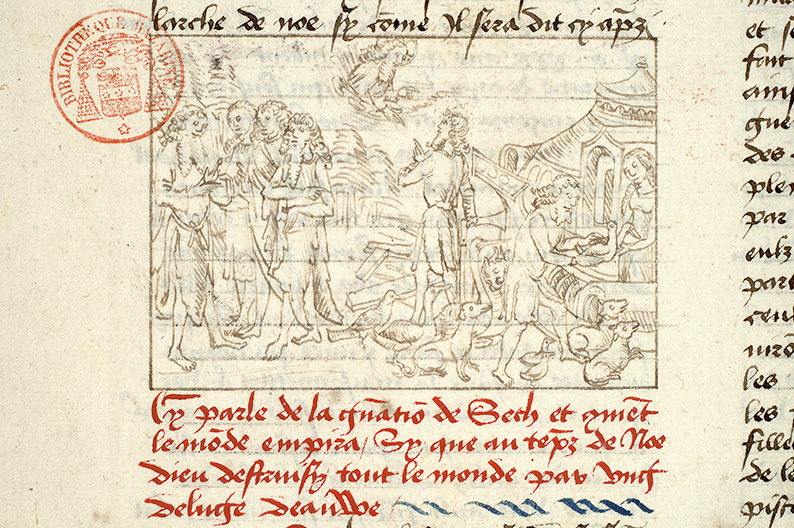 larche de noe sy cōme Il sera dit cy apz
BIBLIOTHEQUE
Cy parle de la gn̄atiō de Seth et gment
le mōde empira / Sy que au tēpz de Noe
dieu destruisy tout le monde par ung
deluge deauwe
et se
fait
ains
gue
des
plen
par
eulz
part
cent
les
les
fille
de le
pist